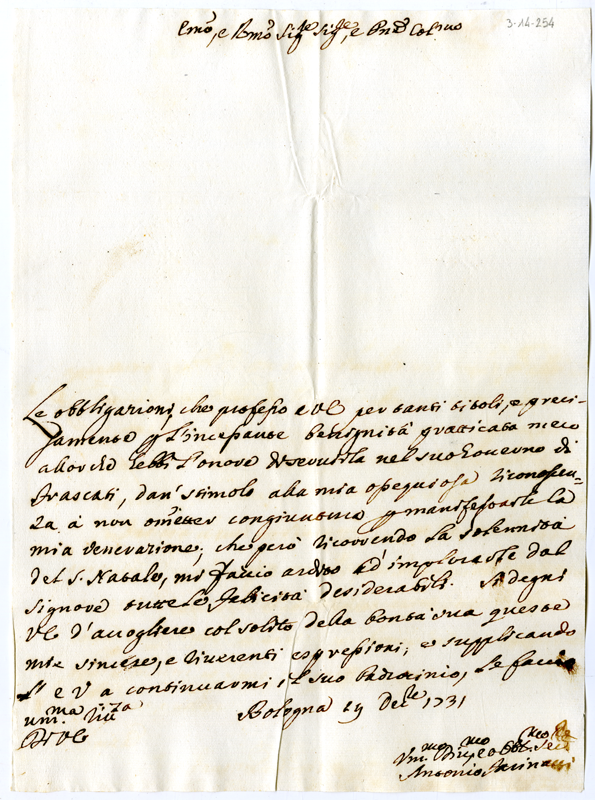 3-14-254
Emo, e Rmo Sigre Sigre, e Pne Col.mo
Le obbligazioni, che professo a VE per tanti titoli, e preci-
samente p l'incessante benignità pratticata meco
allorchè ebbi l'onore di servirla nel suo Governo di
Frascati, dan' stimolo alla mia ossequiosa riconoscen-
za à non ometter congiuntura p manifestarle la
mia venerazione; che però ricorrendo la solennità
del S. Natale, mi faccio ardito ad' implorarle dal
Signore tutte le felicità desiderabili. Si degni
VE d'accogliere col solito della bontà sua queste
mie sincere, e riverenti espressioni; e supplicando
E V a continuarmi il suo padrocinio, le faccio
um.ma riv.za
Di VE
Bologna 19 Dec.re 1731
Um.mo Div.mo e Obb.mo Se.re
Antonio